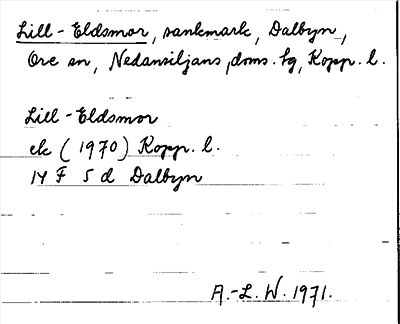 Lill-Eldsmor, sankmark, Dalbyn,
Ore sn, Nedansiljans doms. hg, Kopp. l.
Lill-Eldsmor
ek (1970) Kopp. l.
14 F 5 d Dalbyn
A.-L. W. 1971.